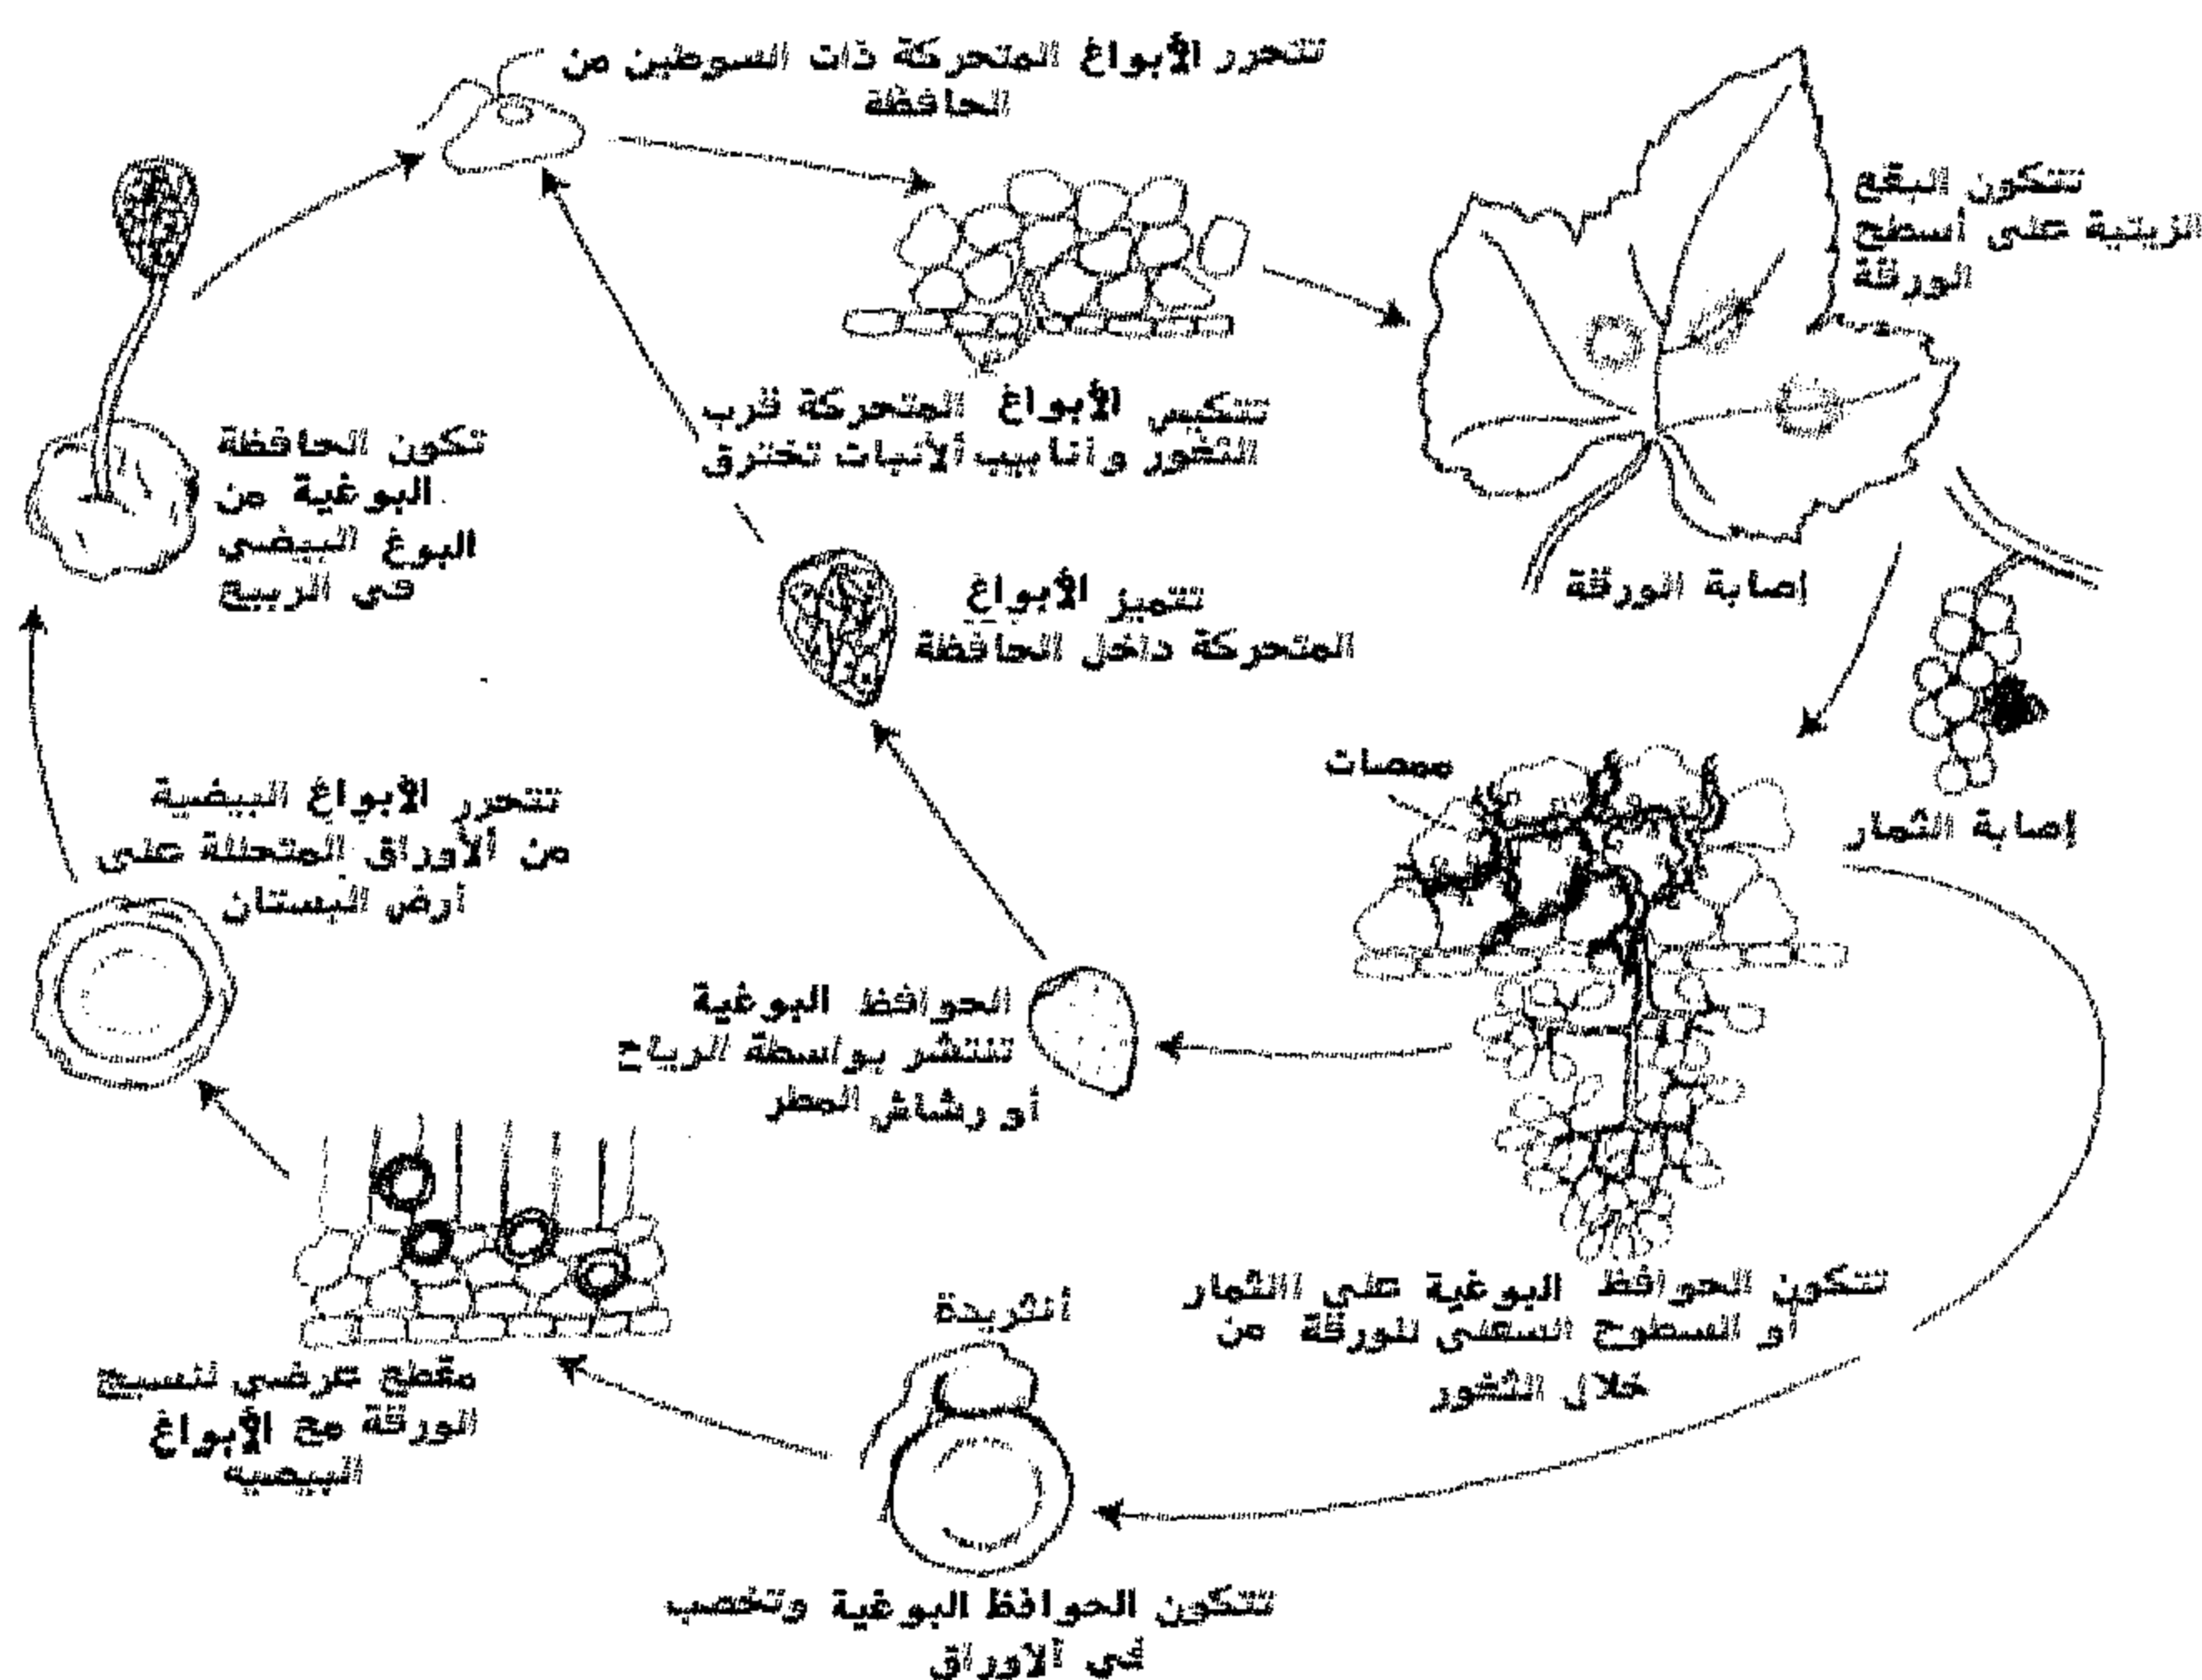 تتحرر الأبواغ المتحركة ذات السوطين من
الحافظة
تتكون البقع
الزيتية على أسطح
الورقة
تتكيس الأبواغ المتحركة قرب
الثغور وأنابيب الأنبات تخترق
تكون الحافظة
البوغية من
البوغ البيضي
في الربيع
إصابة الورقة
تتميز الأبواغ
المتحركة داخل الحافظة
ممصات
إصابة الثمار
تتحرر الأبواغ البيضية
من الأوراق المتحللة على
أرض البستان
الحوافظ البوغية
تنتشر بواسطة الرياح
أو رشاش المطر
تتكون الحوافظ البوغية على االثمار
أو السطوح السفلى للورقة من
خلال الثغور
أنثريدة
مقطع عرضي لنسيج
الورقة مع الأبواغ
البيضية
تتكون الحوافظ البوغية وتخصب
في الأوراق